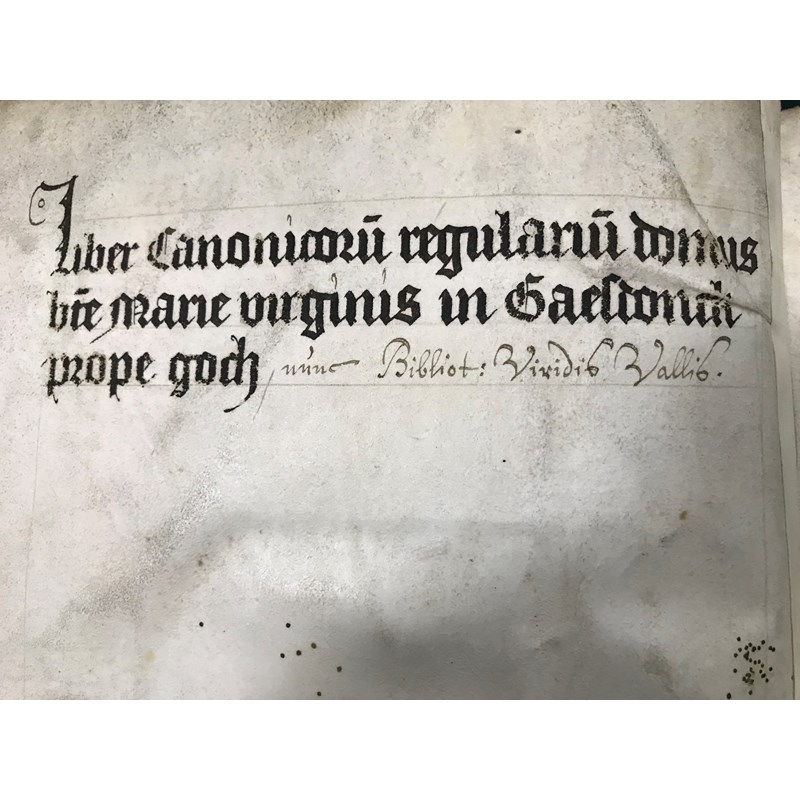 Liber Canonicorū regulariū domus
bt̄e Marie virginis in Gaesdonck
prope goch, nunc Bibliot: Viridis Vallis.